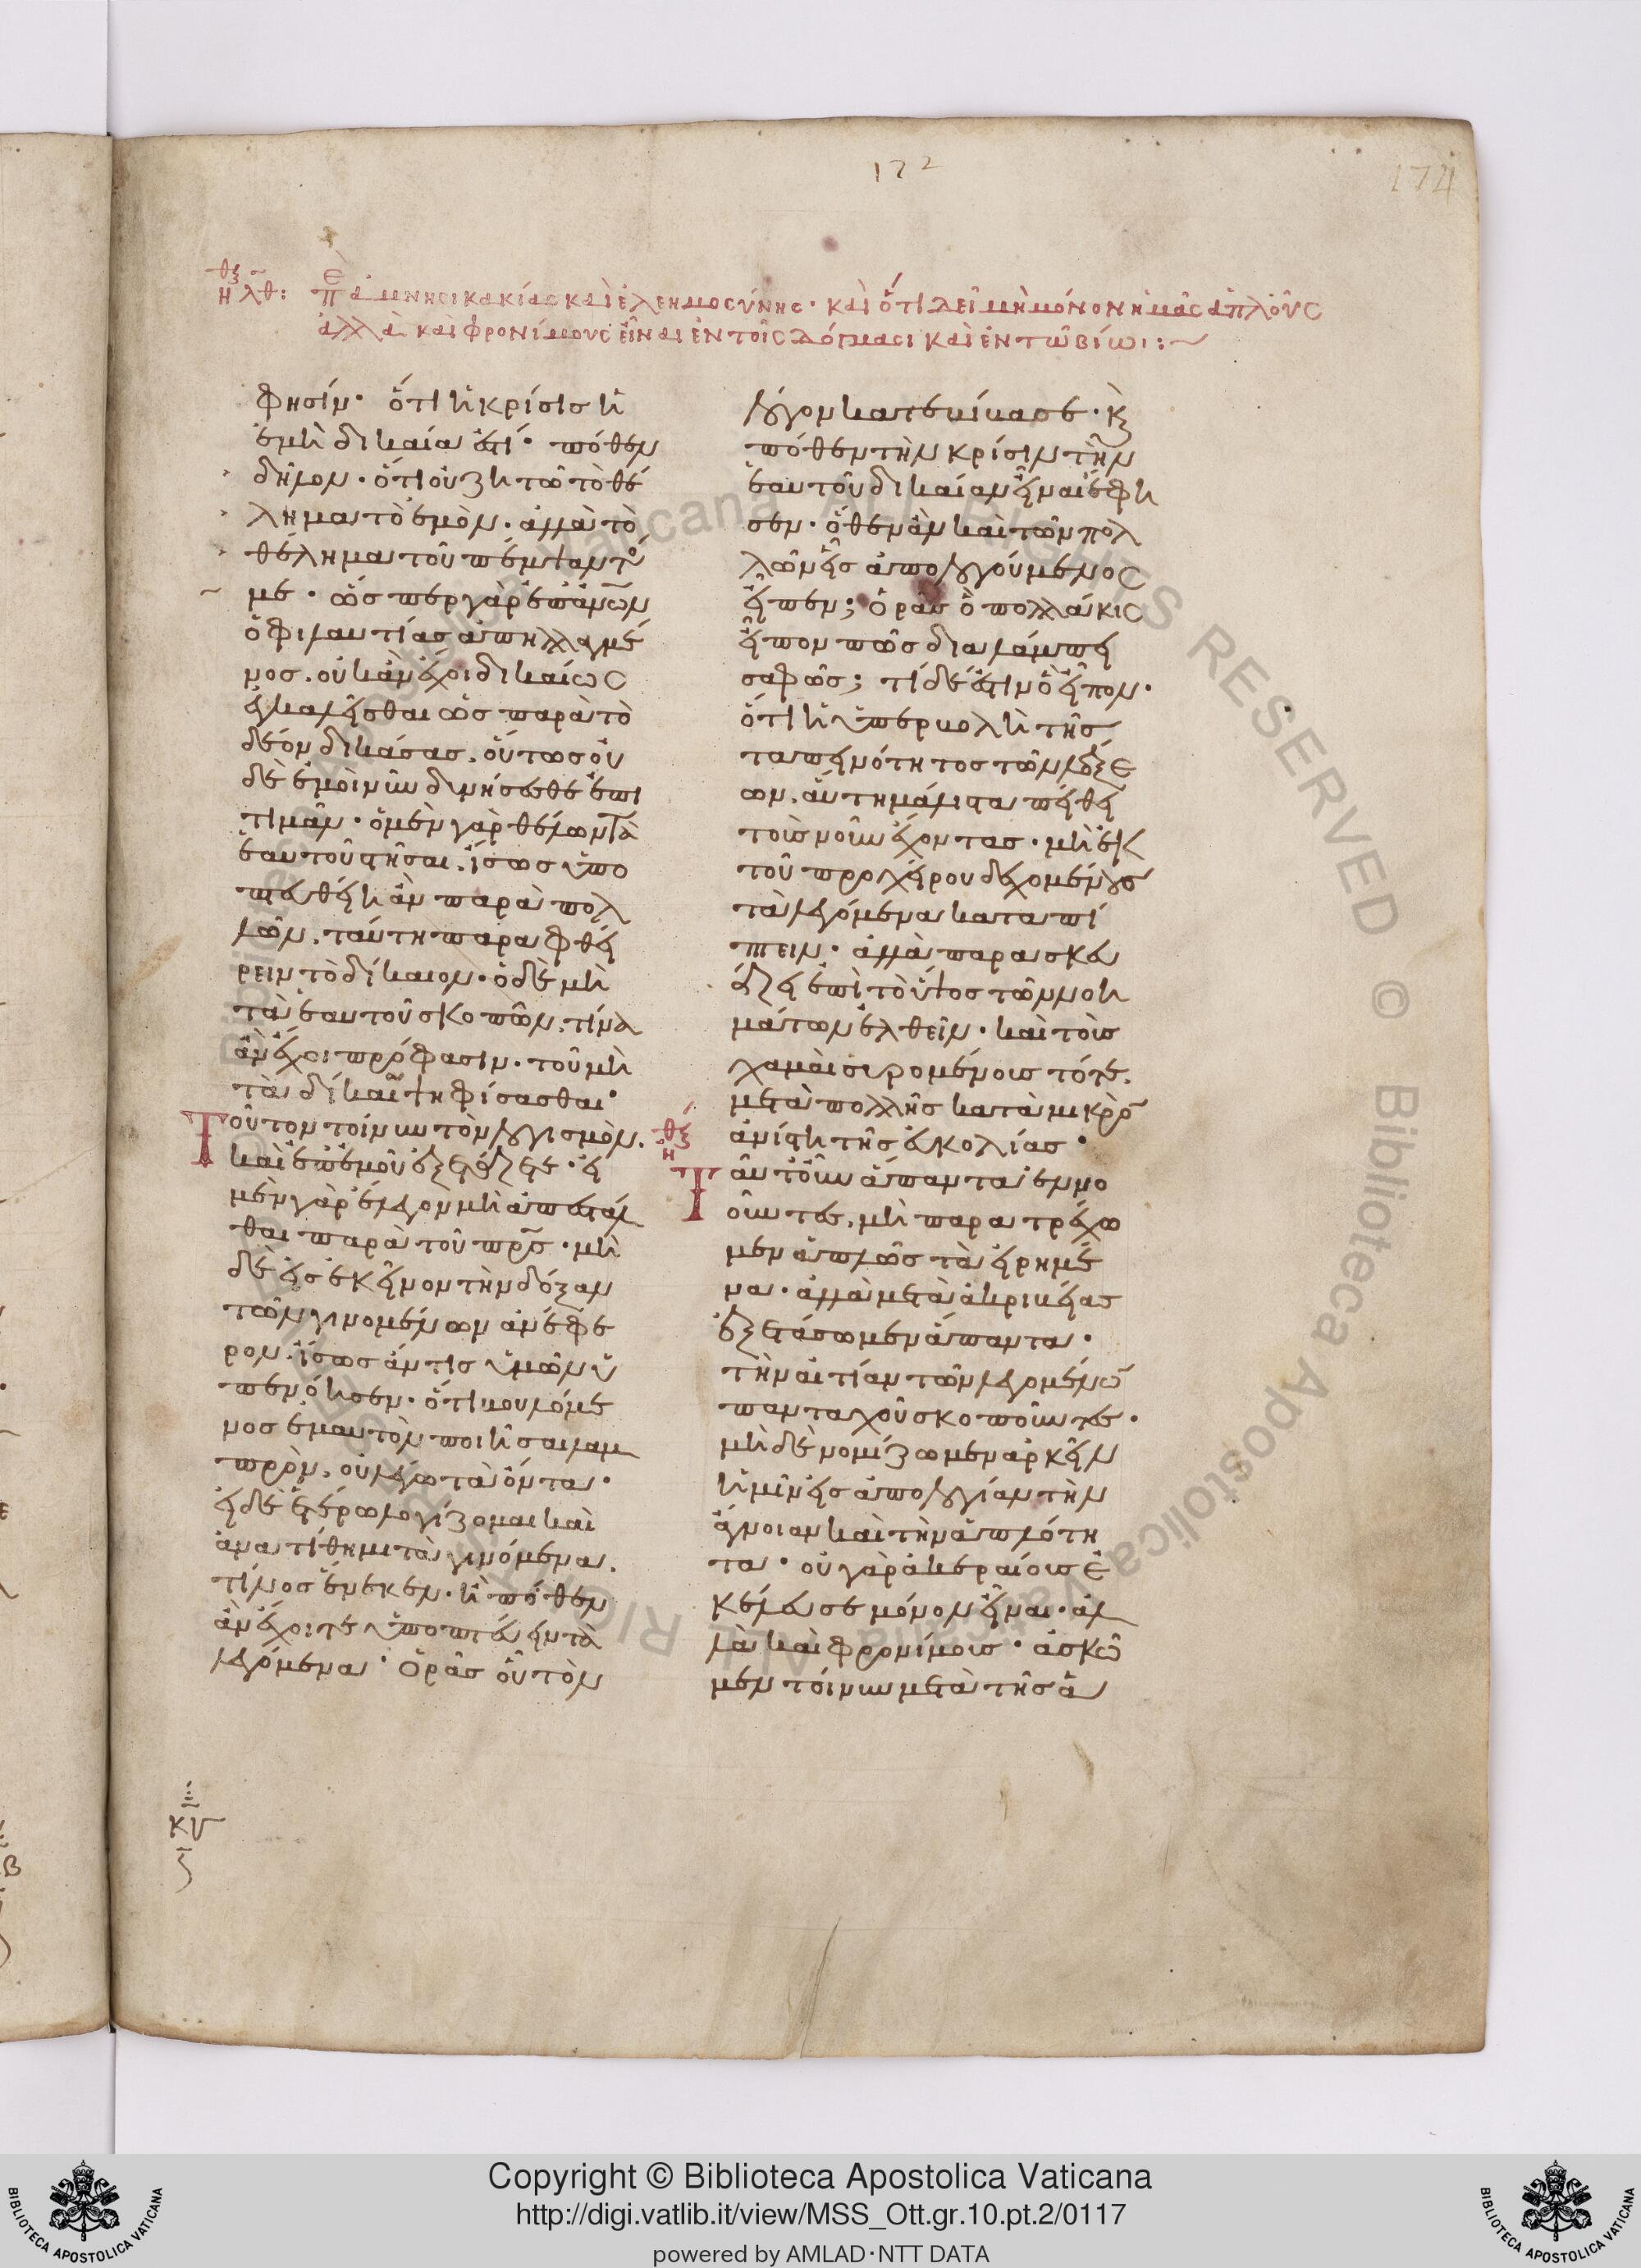 172
174
ἠθικ λθ: Περὶ ἀμνησικακίας καὶ ἐλεημοσύνης· καὶ ὅτι δεῖ μὴ μόνον ἡμᾶς ἁπλοῦς
ἀλλὰ καὶ φρονίμους εἶναι ἐν τοῖς δόγμασι καὶ ἐν τῶ βίωι:~
φησίν· ὅτι ἡ κρίσις ἡ
ἐμὴ δικαία ἐστί· πόθεν
δῆλον· ὅτι οὐ ζητῶ τὸ θέ
λημα τὸ ἐμὸν· ἀλλὰ τὸ
θέλημα τοῦ πέμψαντός
με· ὥσπερ γὰρ ἐπ' ἀνῶν
ὁ φιλαυτίας ἀπηλλαγμέ
νος. οὐκ ἂν ἔχοι δικαίως
ἐγκαλεῖσθαι ὡς παρὰ τὸ
δέον δικάσας. οὕτως οὐ
δὲ ἐμοὶ νῦν δυνήσεσθε ἐπι
τιμᾶν· ὁ μὲν γὰρ θέλων τὰ
ἑαυτοῦ στῆσαι. ἴσως ὑπο
πτευθείη ἂν παρὰ πολ
λῶν. ταύτη παραφθεί
ρειν τὸ δίκαιον· ὁ δὲ μὴ
τὰ ἑαυτοῦ σκοπῶν. τίνα
ἂν ἔχοι πρόφασιν· τοῦ μὴ
τὰ δίκαια ψηφίσασθαι·
Τοῦτον τοίνυν τὸν λογισμὸν.
καὶ ἐπ' ἐμοῦ ἐξετάζετε· εἰ
μὲν γὰρ ἔλεγον μὴ ἀπεστάλ
θαι παρὰ τοῦ πρς· μὴ
δὲ εἰς ἐκεῖνον τὴν δόξαν
τῶν γινομένων ἀνέφε
ρον. ἴσως ἄν τις ὑμῶν ὑ
πενόησεν· ὅτι βουλόμε
νος ἐμαυτὸν ποιῆσαι λαμ
πρὸν. οὐ λέγω τὰ ὄντα·
εἰ δὲ ἑτέρω λογίζομαι καὶ
ἀνατίθημι τὰ γινόμενα.
τίνος ἕνεκεν· ἢ πόθεν
ἂν ἔχοιτε ὑποπτεύειν τὰ
λεγόμενα· Ὁρᾶς οὗ τὸν
λόγον κατεβίβασε· καὶ
πόθεν τὴν κρίσιν τὴν
ἑαυτοῦ δικαίαν εἶναι ἔφη
σεν· ὅθεν ἂν καὶ τῶν πολ
λῶν εἷς ἀπολογούμενος
εἶπεν; Ὁρᾶς ὃ πολλάκις
εἶπον πῶς διαλάμπει
σαφῶς; τί δέ ἐστιν ὃ εἶπον·
ὅτι ἡ ὑπερβολὴ τῆς
ταπεινότητος τῶν λέξε
ων. αὕτη μάλιστα πείθει
τοὺς νοῦν ἔχοντας· μὴ ἐκ
τοῦ προχείρου δεχομένους
τὰ λεγόμενα καταπί
πτειν· ἀλλὰ παρασκευ
άζει ἐπὶ τὸ ὕψος τῶν νοη
μάτων ἐλθεῖν· καὶ τοὺς
χαμαὶ συρομένους τότε.
μετὰ πολλῆς κατὰ μικρὸν
ἀνίστη τῆς εὐκολίας·
Ταῦτ' οὖν ἅπαντα ἐννο
οῦντες. μὴ παρατρέχω
μεν ἁπλῶς τὰ εἰρημέ
να· ἀλλὰ μετὰ ἀκριβείας
ἐξετάσωμεν ἅπαντα·
τὴν αἰτίαν τῶν λεγομένων
πανταχοῦ σκοποῦντες·
μὴ δὲ νομίζωμεν ἀρκεῖν
ἡμῖν εἰς ἀπολογίαν τὴν
ἄγνοιαν καὶ τὴν ἁπλότη
τα· οὐ γὰρ ἀκεραίους ἐ
κέλευσε μόνον εἶναι· ἀλ
λὰ καὶ φρονίμους· ἀσκῶ
μεν τοίνυν μετὰ τῆς ἁ
Copyright © Biblioteca Apostolica Vaticana
http://digi.vatlib.it/view/MSS_Ott.gr.10.pt.2/0117
powered by AMLAD·NTT DATA